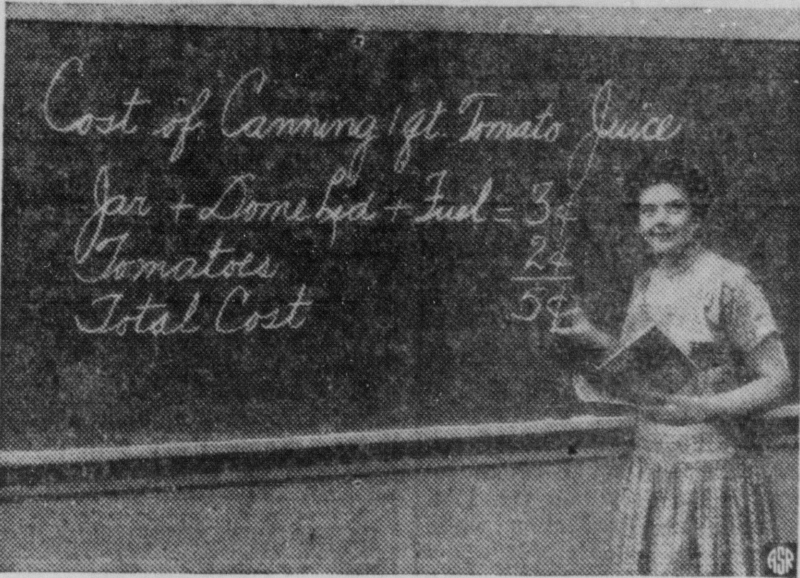 Cost of Canning 1 qt. Tomato Juice
Jar + Dome Lid + Fuel = 3¢
Tomatoes 2¢
Total Cost 5¢
ASR